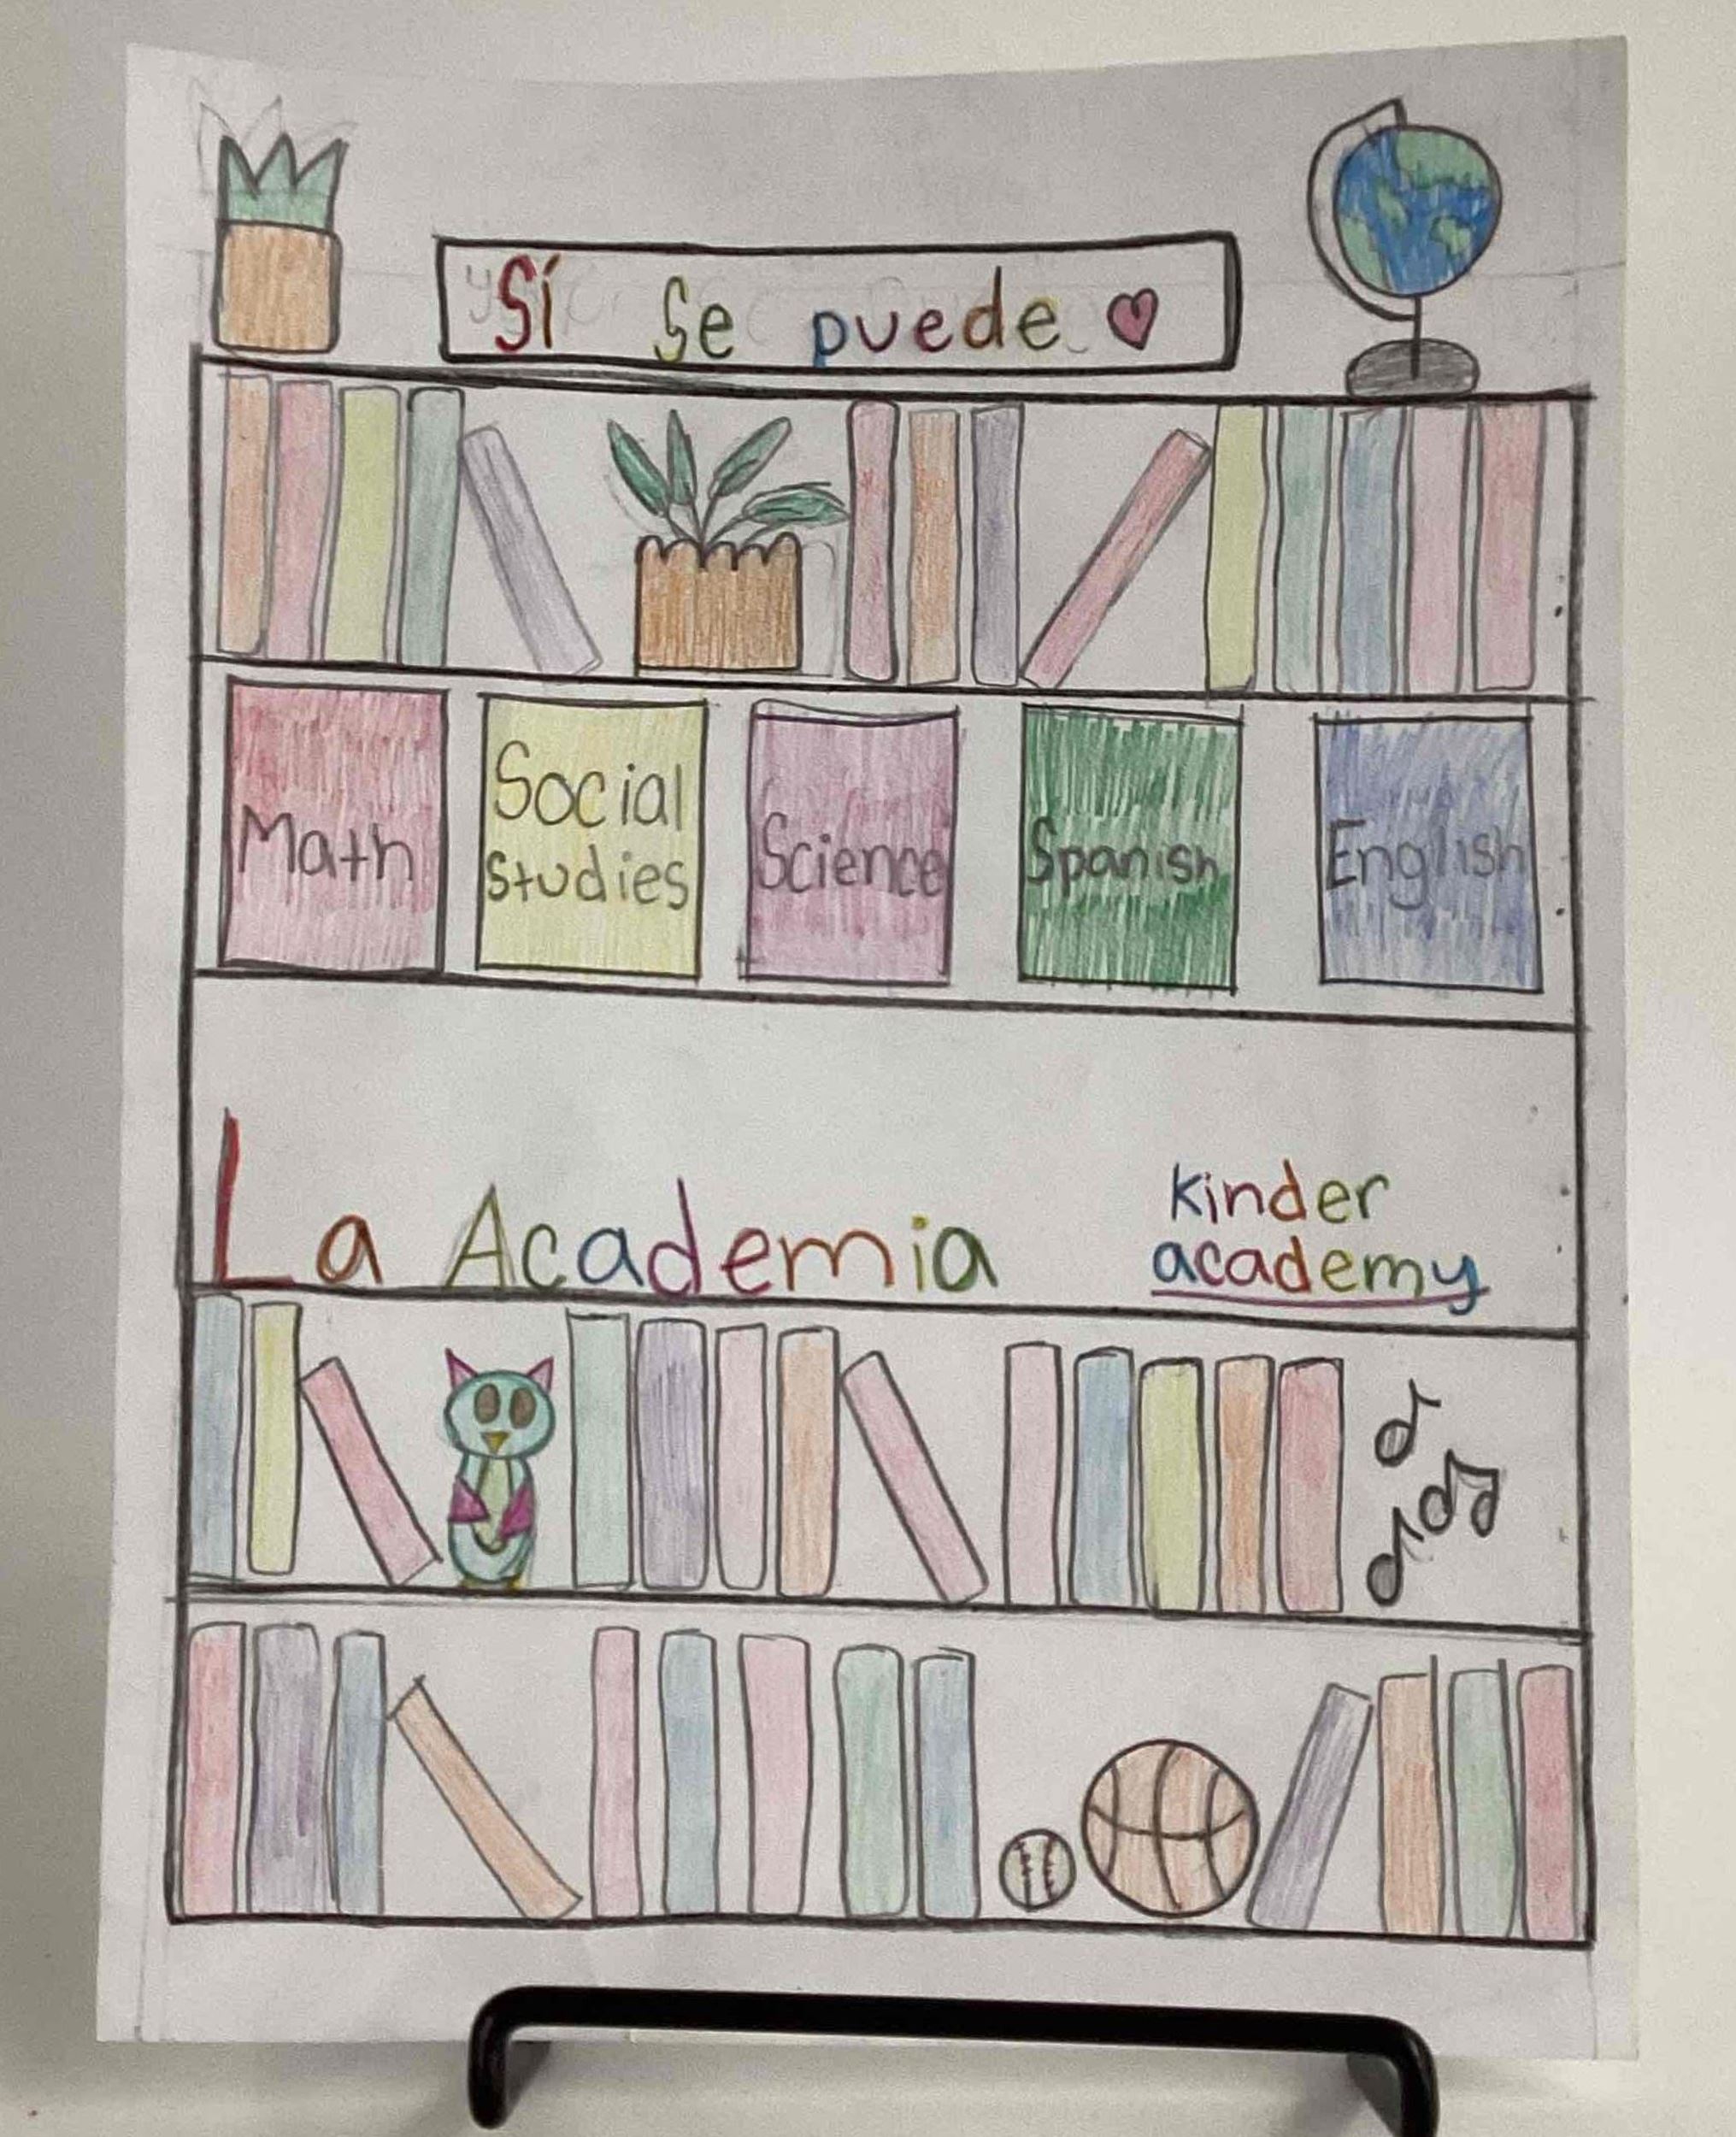 Sí se puede
Math
Social
studies
Science
Spanish
English
La Academia
Kinder
academy